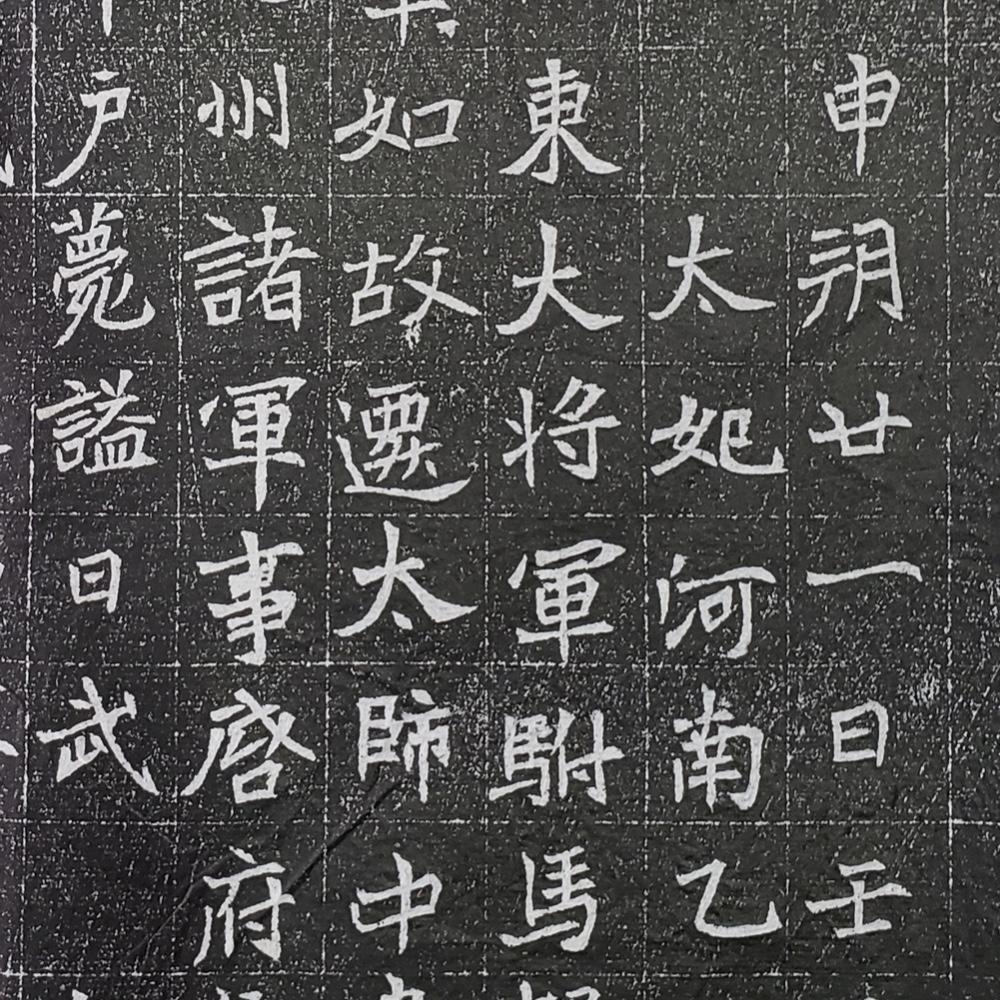 申朔廿一日壬
太妃河南乙
東大將軍駙馬
如故遷太師中
州諸軍事啓府
户薨謚曰武